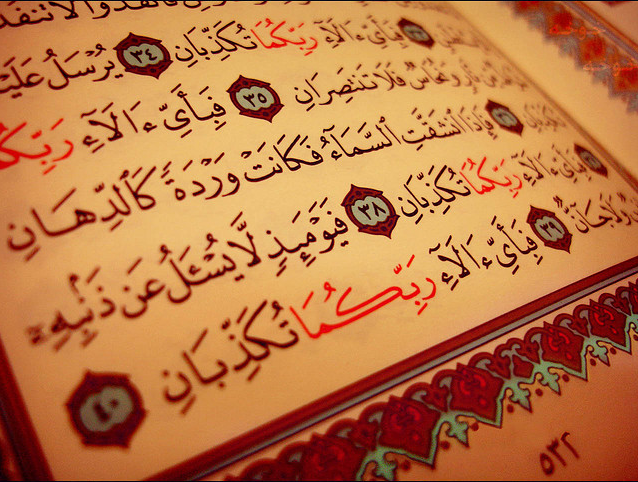 فَٱنفُذُوا۟ لَا تَنفُذُ
فَبِأَىِّ ءَالَآءِ رَبِّكُمَا تُكَذِّبَانِ ٣٤ يُرْسَلُ عَلَيْ
نَّارٍ وَنُحَاسٌ فَلَا تَنتَصِرَانِ ٣٥ فَبِأَىِّ ءَالَآءِ رَبِّكُ
تُكَذِّبَانِ ٣٦ فَإِذَا ٱنشَقَّتِ ٱلسَّمَآءُ فَكَانَتْ وَرْدَةً كَٱلدِّهَانِ
٣٧ فَبِأَىِّ ءَالَآءِ رَبِّكُمَا تُكَذِّبَانِ ٣٨ فَيَوْمَئِذٍ لَّا يُسْـَٔلُ عَن ذَنۢبِهِۦٓ
وَلَا جَآنٌّ ٣٩ فَبِأَىِّ ءَالَآءِ رَبِّكُمَا تُكَذِّبَانِ ٤٠
٥٣٢